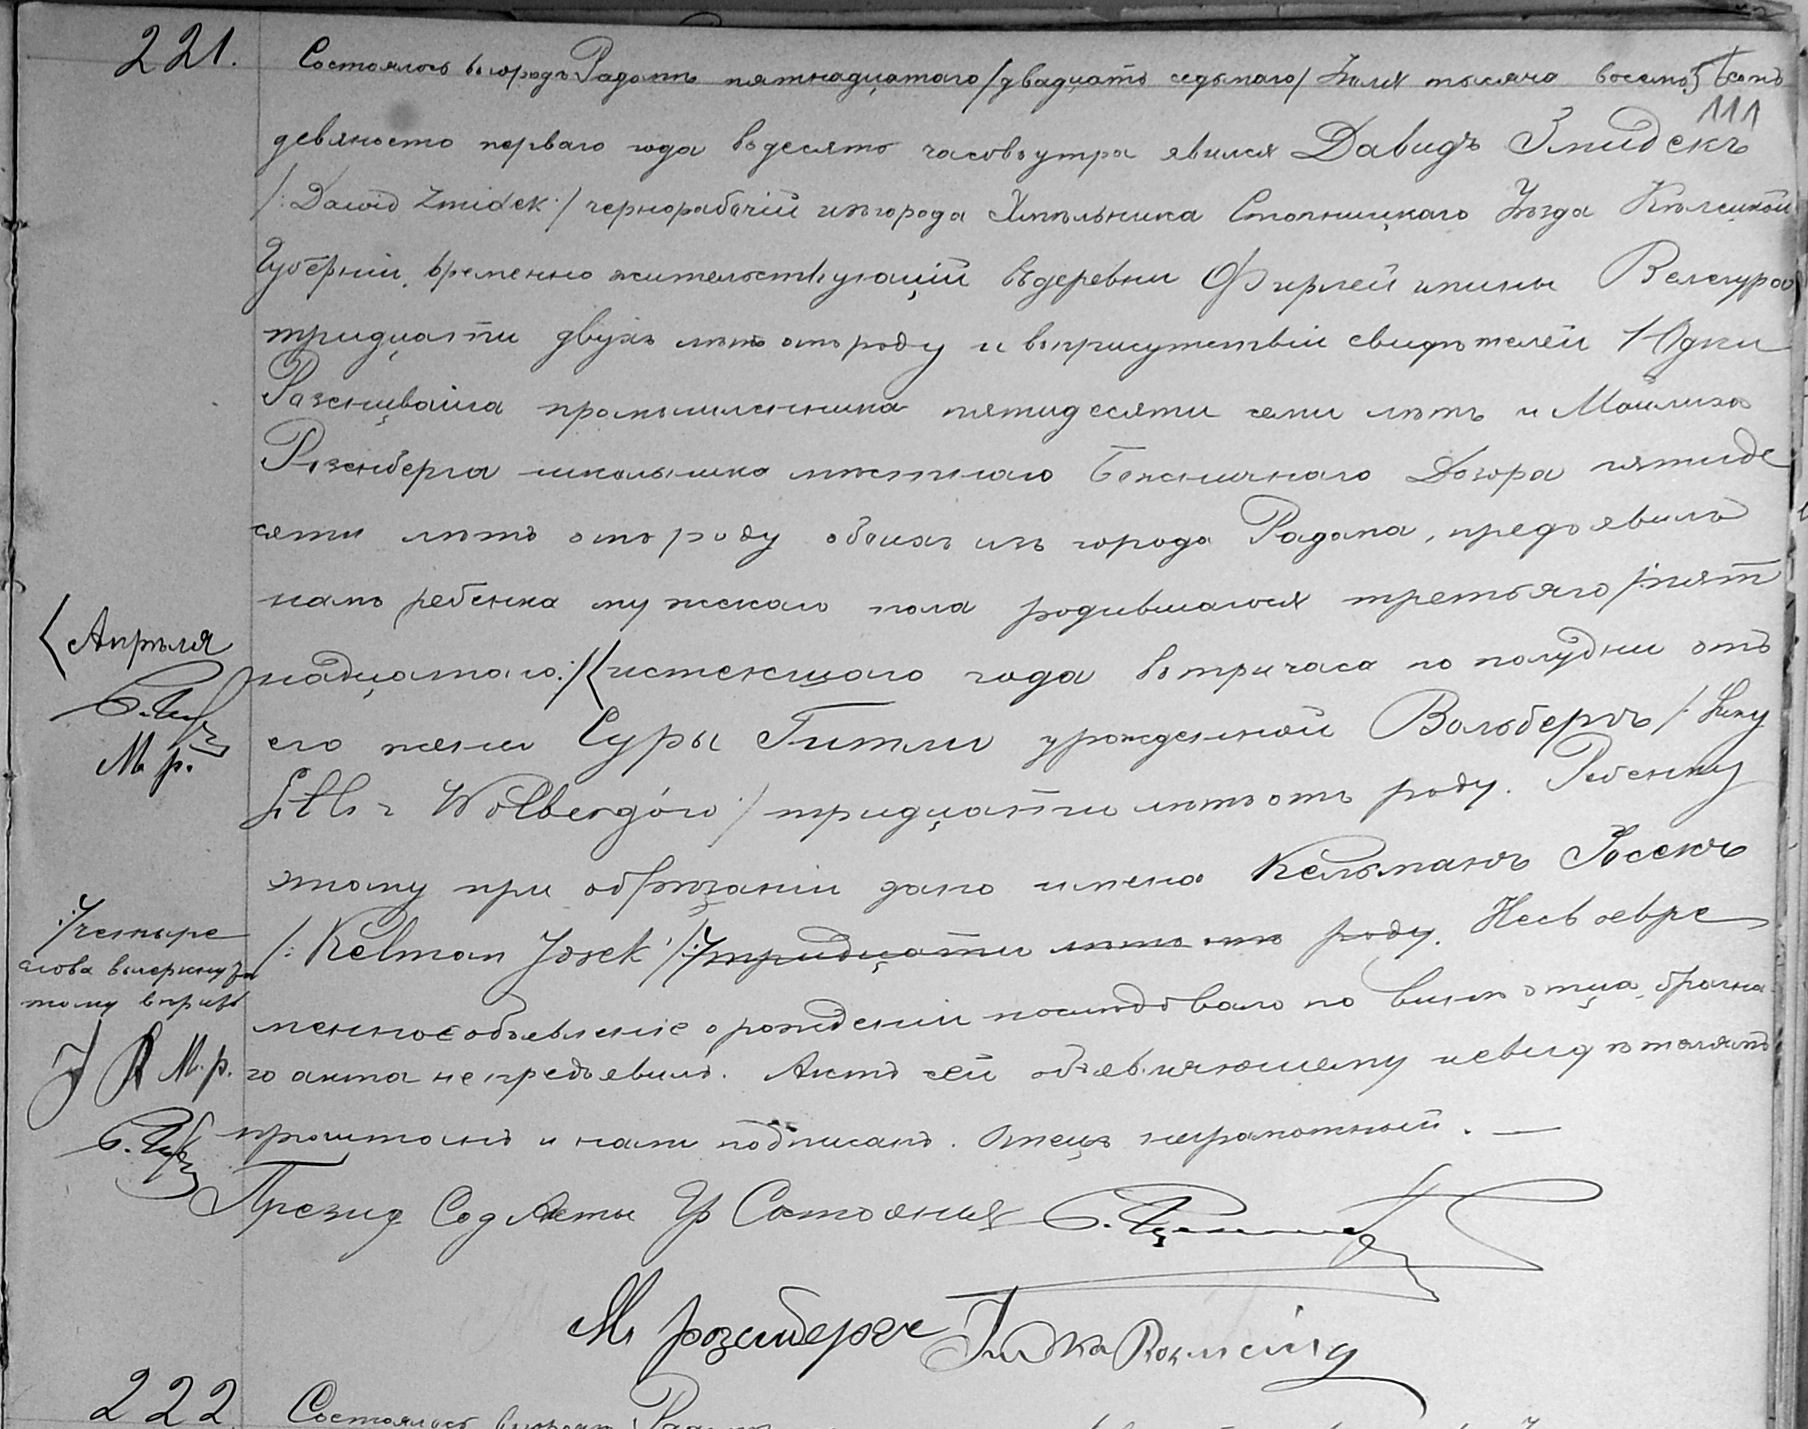 221.
Состоялось въ городѣ Радомѣ пятнадцатаго /двадцать седьмаго/ Іюля тысяча восемьсотъ
111
девяносто перваго года въ десять часовъ утра явился Давидъ Змидекъ
/: Dawid Zmidek :/ чернорабочій изъ города Хмѣльника Стопницкаго Уѣзда Кѣлецкой
Губерніи, временно жительствующій въ деревни Фирлей гмины Велегура
тридцати двухъ лѣтъ отъ роду и въ присутствіи свидѣтелей Юдки
Розенцвайга промышленника пятидесяти семи лѣтъ и Майлиха
Розенберга школьника мѣстнаго Божничнаго Дозора пятиде
сяти лѣтъ отъ роду обоихъ изъ города Радома, предъявилъ
намъ ребенка мужскаго пола родившагося третьяго /: пят
надцатаго :/ < истекшаго года въ три часа по полудни отъ
< Апрѣля
М. р.
его жены Суры Гитли урожденной Вольбергъ /: Sury
Gitli z Wolbergów :/ тридцати лѣтъ отъ роду. Ребенку
этому при обрѣзаніи дано имена Кельманъ Іосекъ
/: Kelman Josek :/ тридцати лѣтъ отъ роду. Несвоевре
четыре
слова вычеркнуто
тому вправь
М. р.
менное объявленіе о рожденіи послѣдовало по винѣ отца, брачна
го акта не предъявилъ. Актъ сей объявляющему и свидѣтелямъ
прочитанъ и нами подписанъ. Отецъ неграмотный. —
Презид Сод Акты Гр Состоянія
М розенбергъ
222.
Состоялось въ городѣ Радомѣ